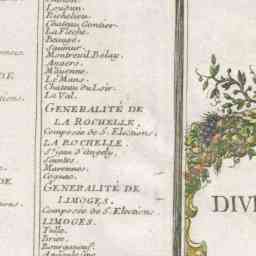 Loudun.
Richelieu.
Chateau Gontier.
La Fleche.
Beaugé.
Saumur.
Montreuil Belay.
Angers.
Mayenne.
Le Mans.
Chateau du Loir.
La Val.
GENERALITÉ DE
LA ROCHELLE.
Composée de 5. Elections.
LA ROCHELLE.
St. Jean d'Angely.
Saintes.
Marennes.
Cognac.
GENERALITÉ DE
LIMOGES.
Composée de 5. Elections.
LIMOGES.
Tulle.
Brive.
Bourganeuf.
DE
DE
DIVI